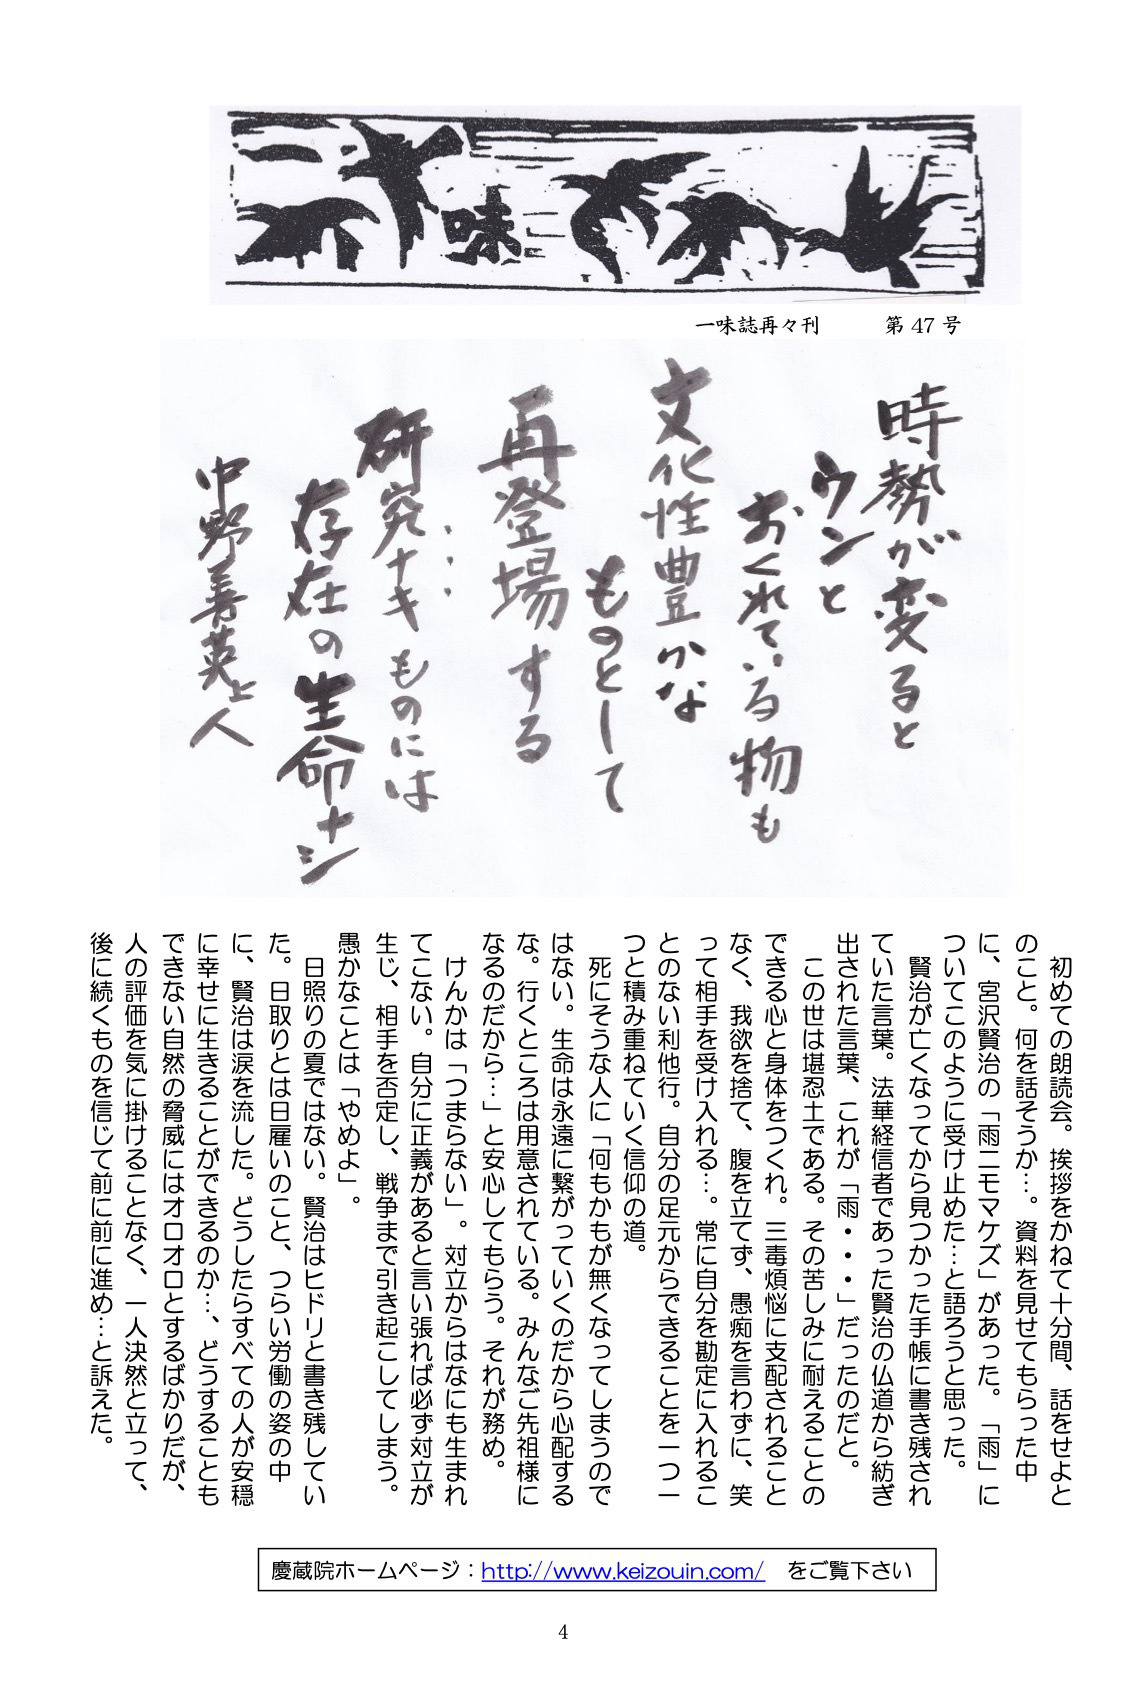 一味
一味誌再々刊　　　第 47 号
時勢が変ると
ウンと
おくれている物も
文化性豊かな
ものとして
再登場する
研究ナキものには
存在の生命ナシ
中野善英上人
　初めての朗読会。挨拶をかねて十分間、話をせよと
のこと。何を話そうか…。資料を見せてもらった中
に、宮沢賢治の「雨ニモマケズ」があった。「雨」に
ついてこのように受け止めた…と語ろうと思った。
　賢治が亡くなってから見つかった手帳に書き残され
ていた言葉。法華経信者であった賢治の仏道から紡ぎ
出された言葉、これが「雨・・・」だったのだと。
　この世は堪忍土である。その苦しみに耐えることの
できる心と身体をつくれ。三毒煩悩に支配されること
なく、我欲を捨て、腹を立てず、愚痴を言わずに、笑
って相手を受け入れる…。常に自分を勘定に入れるこ
とのない利他行。自分の足元からできることを一つ一
つと積み重ねていく信仰の道。
　死にそうな人に「何もかもが無くなってしまうので
はない。生命は永遠に繋がっていくのだから心配する
な。行くところは用意されている。みんなご先祖様に
なるのだから…」と安心してもらう。それが務め。
　けんかは「つまらない」。対立からはなにも生まれ
てこない。自分に正義があると言い張れば必ず対立が
生じ、相手を否定し、戦争まで引き起こしてしまう。
愚かなことは「やめよ」。
　日照りの夏ではない。賢治はヒドリと書き残してい
た。日取りとは日雇いのこと、つらい労働の姿の中
に、賢治は涙を流した。どうしたらすべての人が安穏
に幸せに生きることができるのか…、どうすることも
できない自然の脅威にはオロオロとするばかりだが、
人の評価を気に掛けることなく、一人決然と立って、
後に続くものを信じて前に前に進め…と訴えた。
慶蔵院ホームページ：http://www.keizouin.com/　をご覧下さい
4